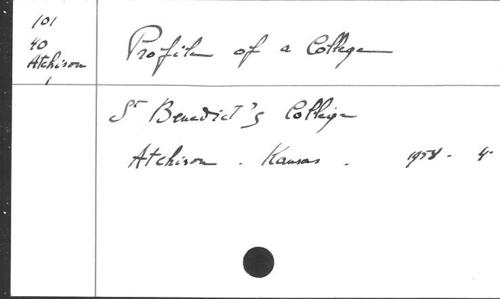 101
40
Atchison
1
Profile of a College
St Benedict's College
Atchison . Kansas . 1958 - 4°